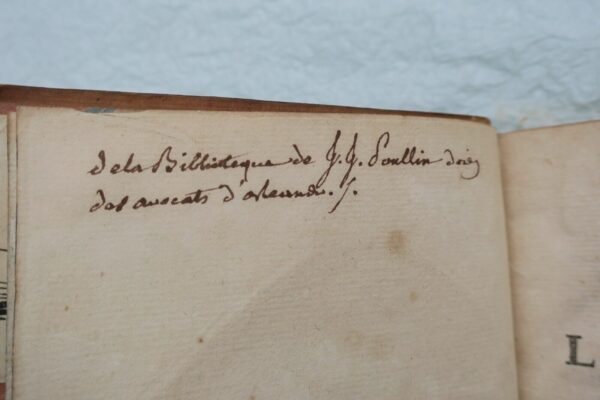 dela Biblioteque de J. J. Poullin doien
des avocats d'orleans. /.
L